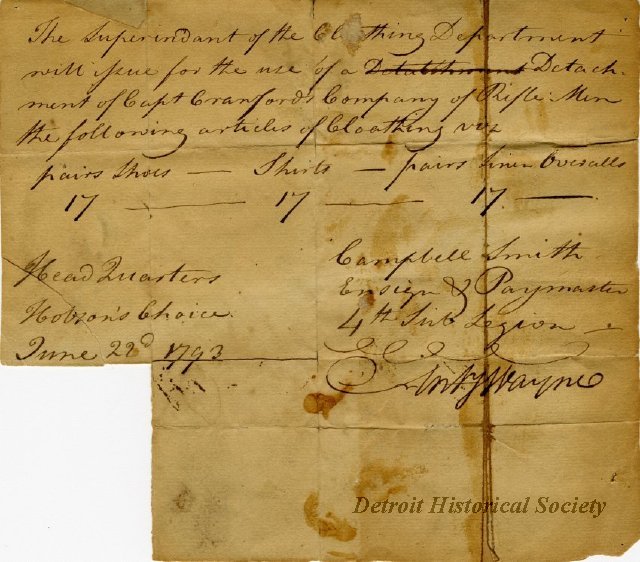 The Superindant of the Cloathing Department
will issue for the use of a Detatchment Detach-
ment of Capt Cranfords Company of Rifle Men
the following articles of Cloathing viz
pairs Shoes — Shirts — pairs Linen Overalls
17 — 17 — 17 —
Head Quarters
Hobson's Choice
June 22d 1793
Campbell Smith
Ensign & Paymaster
4th Sub Legion —
Anty Wayne
Detroit Historical Society